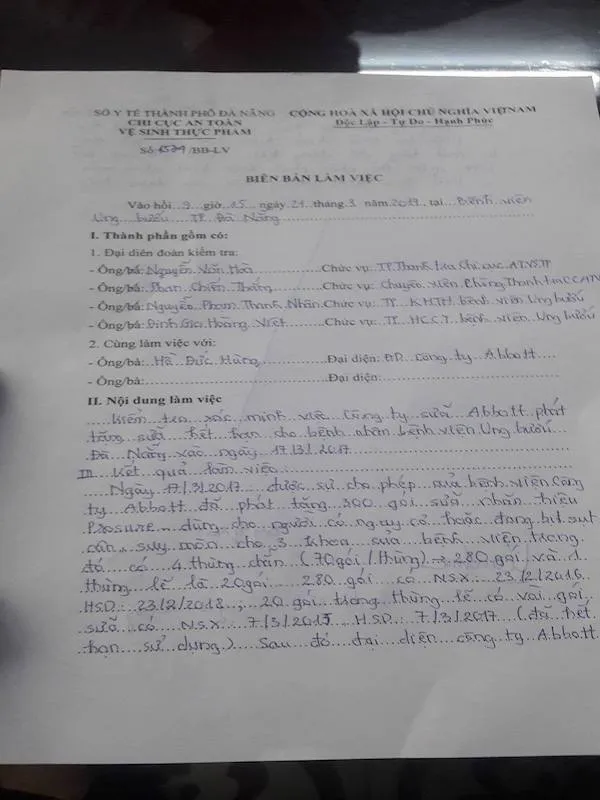 SỞ Y TẾ THÀNH PHỐ ĐÀ NẴNG CỘNG HOÀ XÃ HỘI CHỦ NGHĨA VIỆTNAM
CHI CỤC AN TOÀN Độc Lập - Tự Do - Hạnh Phúc
VỆ SINH THỰC PHẨM
Số /BB-LV
BIÊN BẢN LÀM VIỆC
Vào hồi 9 giờ 15 ngày 21 tháng 3 năm 2017 tại Bệnh viện
Ung bướu TP Đà Nẵng
I. Thành phần gồm có:
1. Đại diện đoàn kiểm tra:
- Ông/bà: Nguyễn Văn Hoà Chức vụ: TP. Thanh tra Chi cục ATVSTP
- Ông/bà: Phan Chiến Thắng Chức vụ: Chuyên viên Phòng Thanh tra CCATV
- Ông/bà: Nguyễn Phạm Thanh Nhân Chức vụ: TP. KHTH bệnh viện Ung bướu
- Ông/bà: Đinh Gia Hoàng Việt Chức vụ: TP. HCCT bệnh viện Ung bướu
2. Cùng làm việc với:
- Ông/bà: Hà Đức Hùng Đại diện: ĐD công ty Abbott
- Ông/bà: Đại diện:
II. Nội dung làm việc
Kiểm tra xác minh việc Công ty sữa Abbott phát
tặng sữa hết hạn cho bệnh nhân bệnh viện Ung bướu
Đà Nẵng vào ngày 17/3/2017
III. Kết quả làm việc:
Ngày 17/3/2017 được sự cho phép của bệnh viện Công
ty Abbott đã phát tặng 300 gói sữa nhãn hiệu
Prosure dùng cho người có nguy cơ hoặc đang bị sụt
cân, suy mòn cho 3 khoa của bệnh viện trong
đó có 4 thùng chẵn (70gói/thùng) → 280 gói và 1
thùng lẻ là 20gói. 280 gói có NSX: 23/2/2016
HSD: 23/2/2018; 20 gói trong thùng lẻ có vài gói
sữa có NSX: 7/3/2015 HSD: 7/3/2017 (đã hết
hạn sử dụng). Sau đó đại diện công ty Abbott